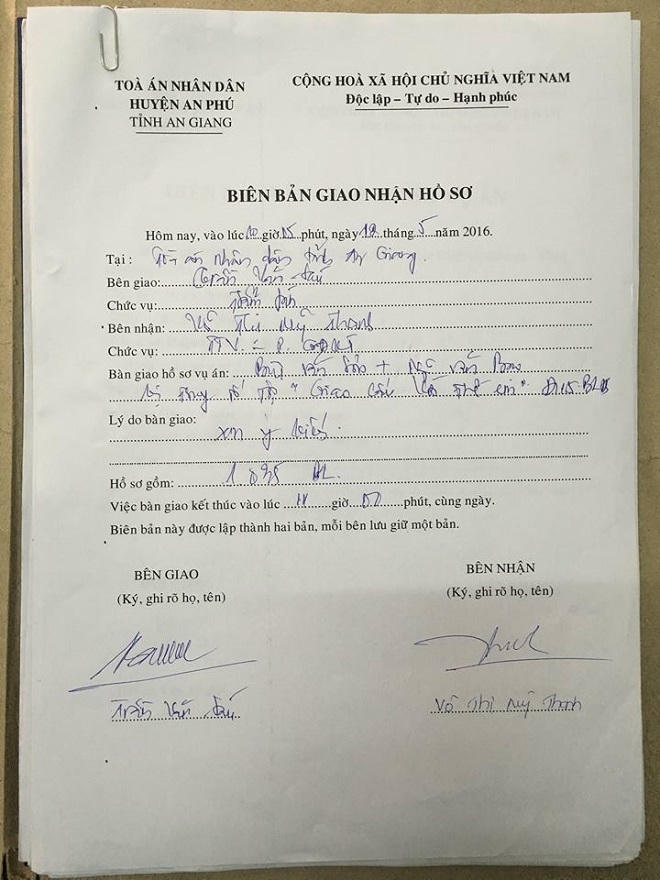 TOÀ ÁN NHÂN DÂN
HUYỆN AN PHÚ
TỈNH AN GIANG
CỘNG HOÀ XÃ HỘI CHỦ NGHĨA VIỆT NAM
Độc lập – Tự do – Hạnh phúc
BIÊN BẢN GIAO NHẬN HỒ SƠ
Hôm nay, vào lúc 10 giờ 15 phút, ngày tháng 5 năm 2016.
Tại : Tòa án nhân dân tỉnh An Giang.
Bên giao: Trần Văn
Chức vụ:
Bên nhận: Võ Thị Mỹ Thanh
Chức vụ: TTV
Bàn giao hồ sơ vụ án: văn + văn
"Giao cấu với trẻ em" Đ115. BLHS
Lý do bàn giao:
xin ý kiến.
Hồ sơ gồm: BL.
Việc bàn giao kết thúc vào lúc giờ phút, cùng ngày.
Biên bản này được lập thành hai bản, mỗi bên lưu giữ một bản.
BÊN GIAO
(Ký, ghi rõ họ, tên)
BÊN NHẬN
(Ký, ghi rõ họ, tên)
Trần Văn
Võ Thị Mỹ Thanh